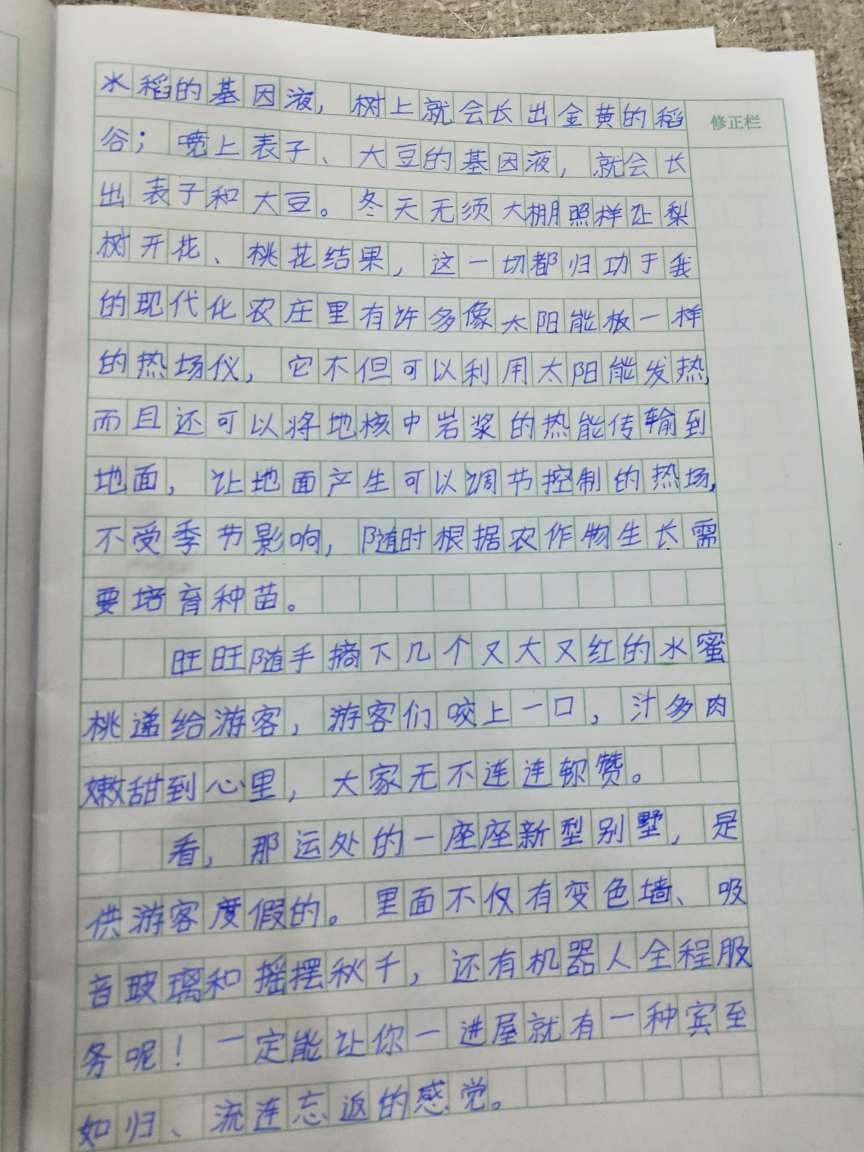 水稻的基因液，树上就会长出金黄的稻
修正栏
谷；喷上表子、大豆的基因液，就会长
出表子和大豆。冬天无须大棚照样让梨
树开花、桃花结果，这一切都归功于我
的现代化农庄里有许多像太阳能板一样
的热场仪，它不但可以利用太阳能发热，
而且还可以将地核中岩浆的热能传输到
地面，让地面产生可以调节控制的热场，
不受季节影响，随时根据农作物生长需
要培育种苗。
旺旺随手摘下几个又大又红的水蜜
桃递给游客，游客们咬上一口，汁多肉
嫩甜到心里，大家无不连连称赞。
看，那运处的一座座新型别墅，是
供游客度假的。里面不仅有变色墙、吸
音玻璃和摇摆秋千，还有机器人全程服
务呢！一定能让你一进屋就有一种宾至
如归、流连忘返的感觉。